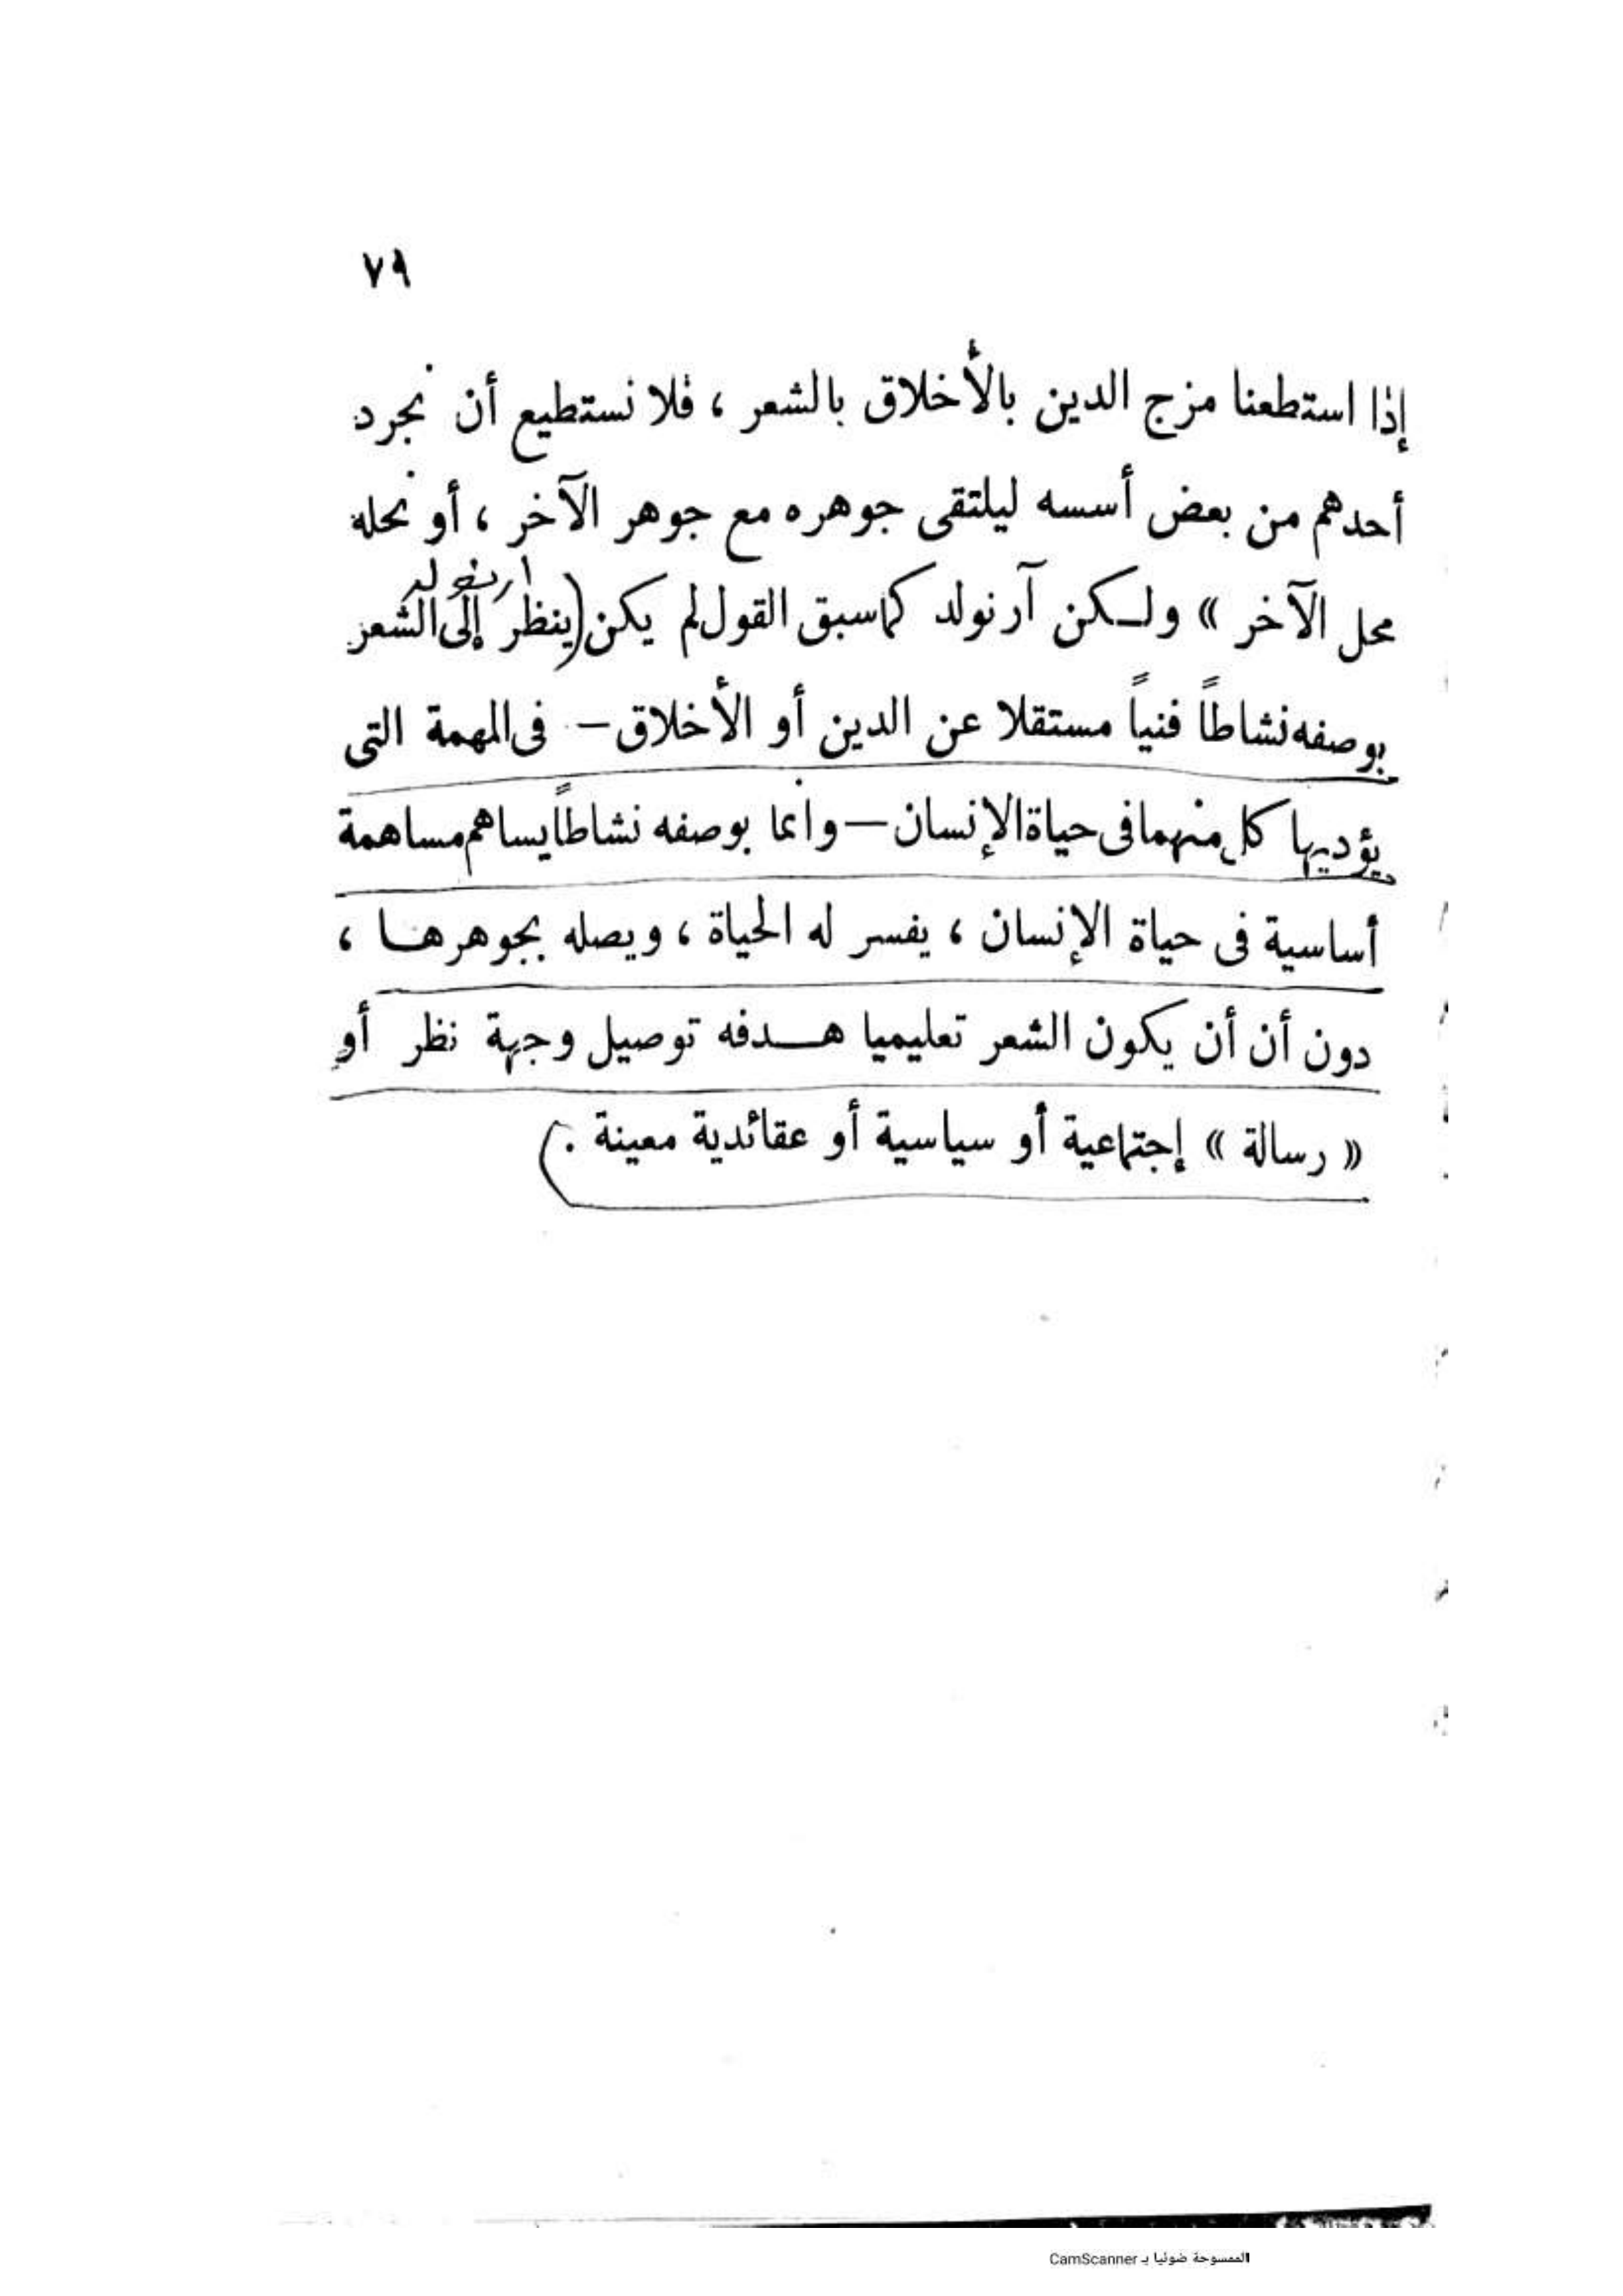 ٧٩
إذا استطعنا مزج الدين بالأخلاق بالشعر ، فلا نستطيع أن نجرد
أحدهم من بعض أسسه ليلتقى جوهره مع جوهر الآخر ، أو نحله
ارنولد
محل الآخر » ولكن آرنولد كما سبق القول لم يكن (ينظر إلى الشعر
بوصفه نشاطاً فنياً مستقلا عن الدين أو الأخلاق — فى المهمة التى
يؤديها كل منهما فى حياة الإنسان — وانما بوصفه نشاطاً يساهم مساهمة
أساسية فى حياة الإنسان ، يفسر له الحياة ، ويصله بجوهرها ،
دون أن أن يكون الشعر تعليميا هدفه توصيل وجهة نظر أو
« رسالة » إجتماعية أو سياسية أو عقائدية معينة .)
الممسوحة ضوئيا بـ CamScanner